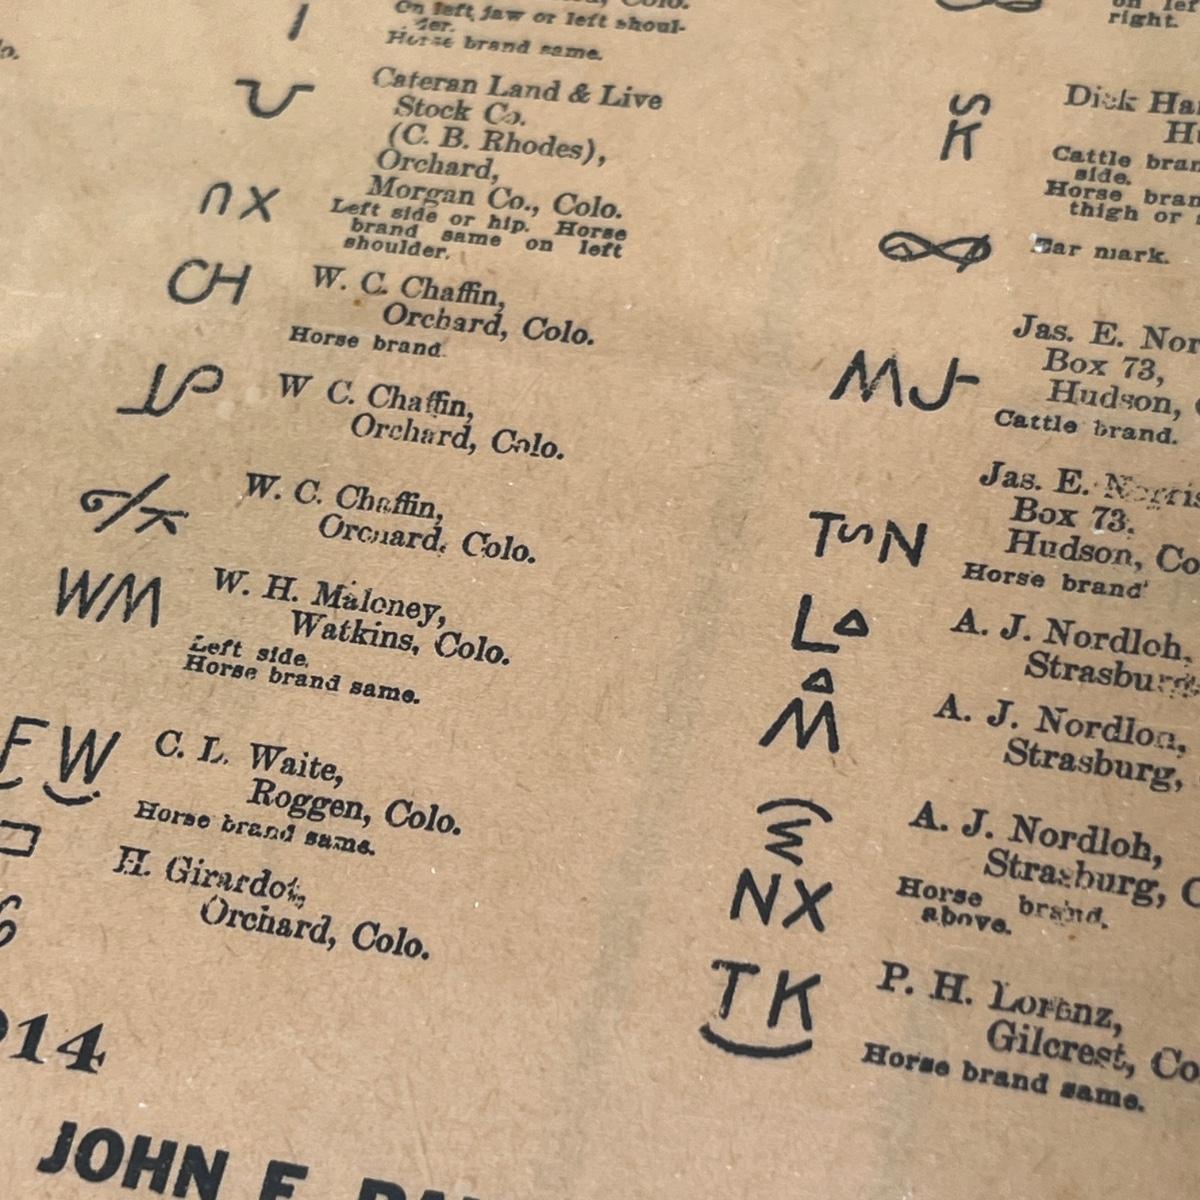 On left jaw or left shoul-
der.
Horse brand same.
Cateran Land & Live
Stock Co.
(C. B. Rhodes),
Orchard,
Morgan Co., Colo.
Left side or hip. Horse
brand same on left
shoulder.
CH
W. C. Chaffin,
Orchard, Colo.
Horse brand.
W C. Chaffin,
Orchard, Colo.
W. C. Chaffin,
Orchard, Colo.
WM
W. H. Maloney,
Watkins, Colo.
Left side.
Horse brand same.
F W
C. L. Waite,
Roggen, Colo.
Horse brand same.
H. Girardot,
Orchard, Colo.
914
JOHN F.
right.
S
K
Dick
Cattle
side.
Horse
thigh or
Ear mark.
MJ
Jas. E.
Box 73,
Hudson,
Cattle brand.
TSN
Jas. E. Norris
Box 73.
Hudson, Co
Horse brand
L
A. J. Nordloh,
Strasburg
M
A. J. Nordloh,
Strasburg,
A. J. Nordloh,
Strasburg, C
NX
Horse brand.
above.
TK
P. H. Lorenz,
Gilcrest, Co
Horse brand same.